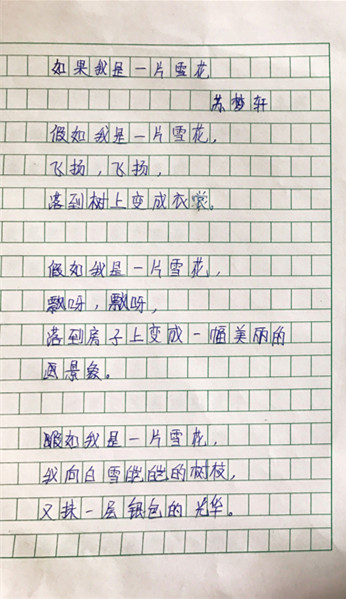 如果我是一片雪花
苏梦轩
假如我是一片雪花，
飞扬，飞扬，
落到树上变成衣裳。
假如我是一片雪花，
飘呀，飘呀，
落到房子上变成一幅美丽的
画景象。
假如我是一片雪花，
我向白雪皑皑的树枝，
又抹一层银色的光华。